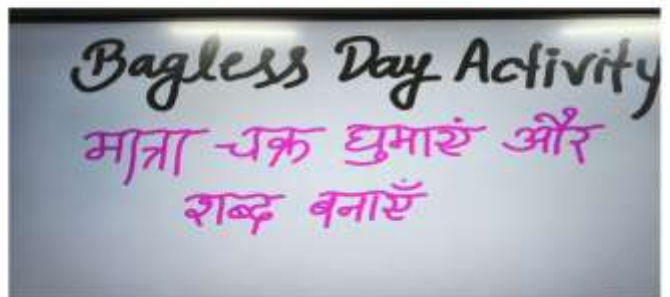 Bagless Day Activity
मात्रा चक्र घुमाएं और
शब्द बनाएँ